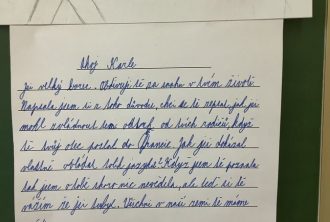 Ahoj Karle
jsi velký borec. Obdivuji tě za snahu v tvém životě.
Napsala jsem ti z toho důvodu, chci se tě zeptat, jak jsi
mohl zvládnout ten od tvých rodičů, když
tě tvůj otec poslal do Francie. Jak jsi dokázal
vlastně ovládat tolik jazyků? Když jsem tě poznala
tak jsem v tobě skoro nic neviděla, ale teď si tě
vážím že jsi byl. Všichni v naší zemi tě máme